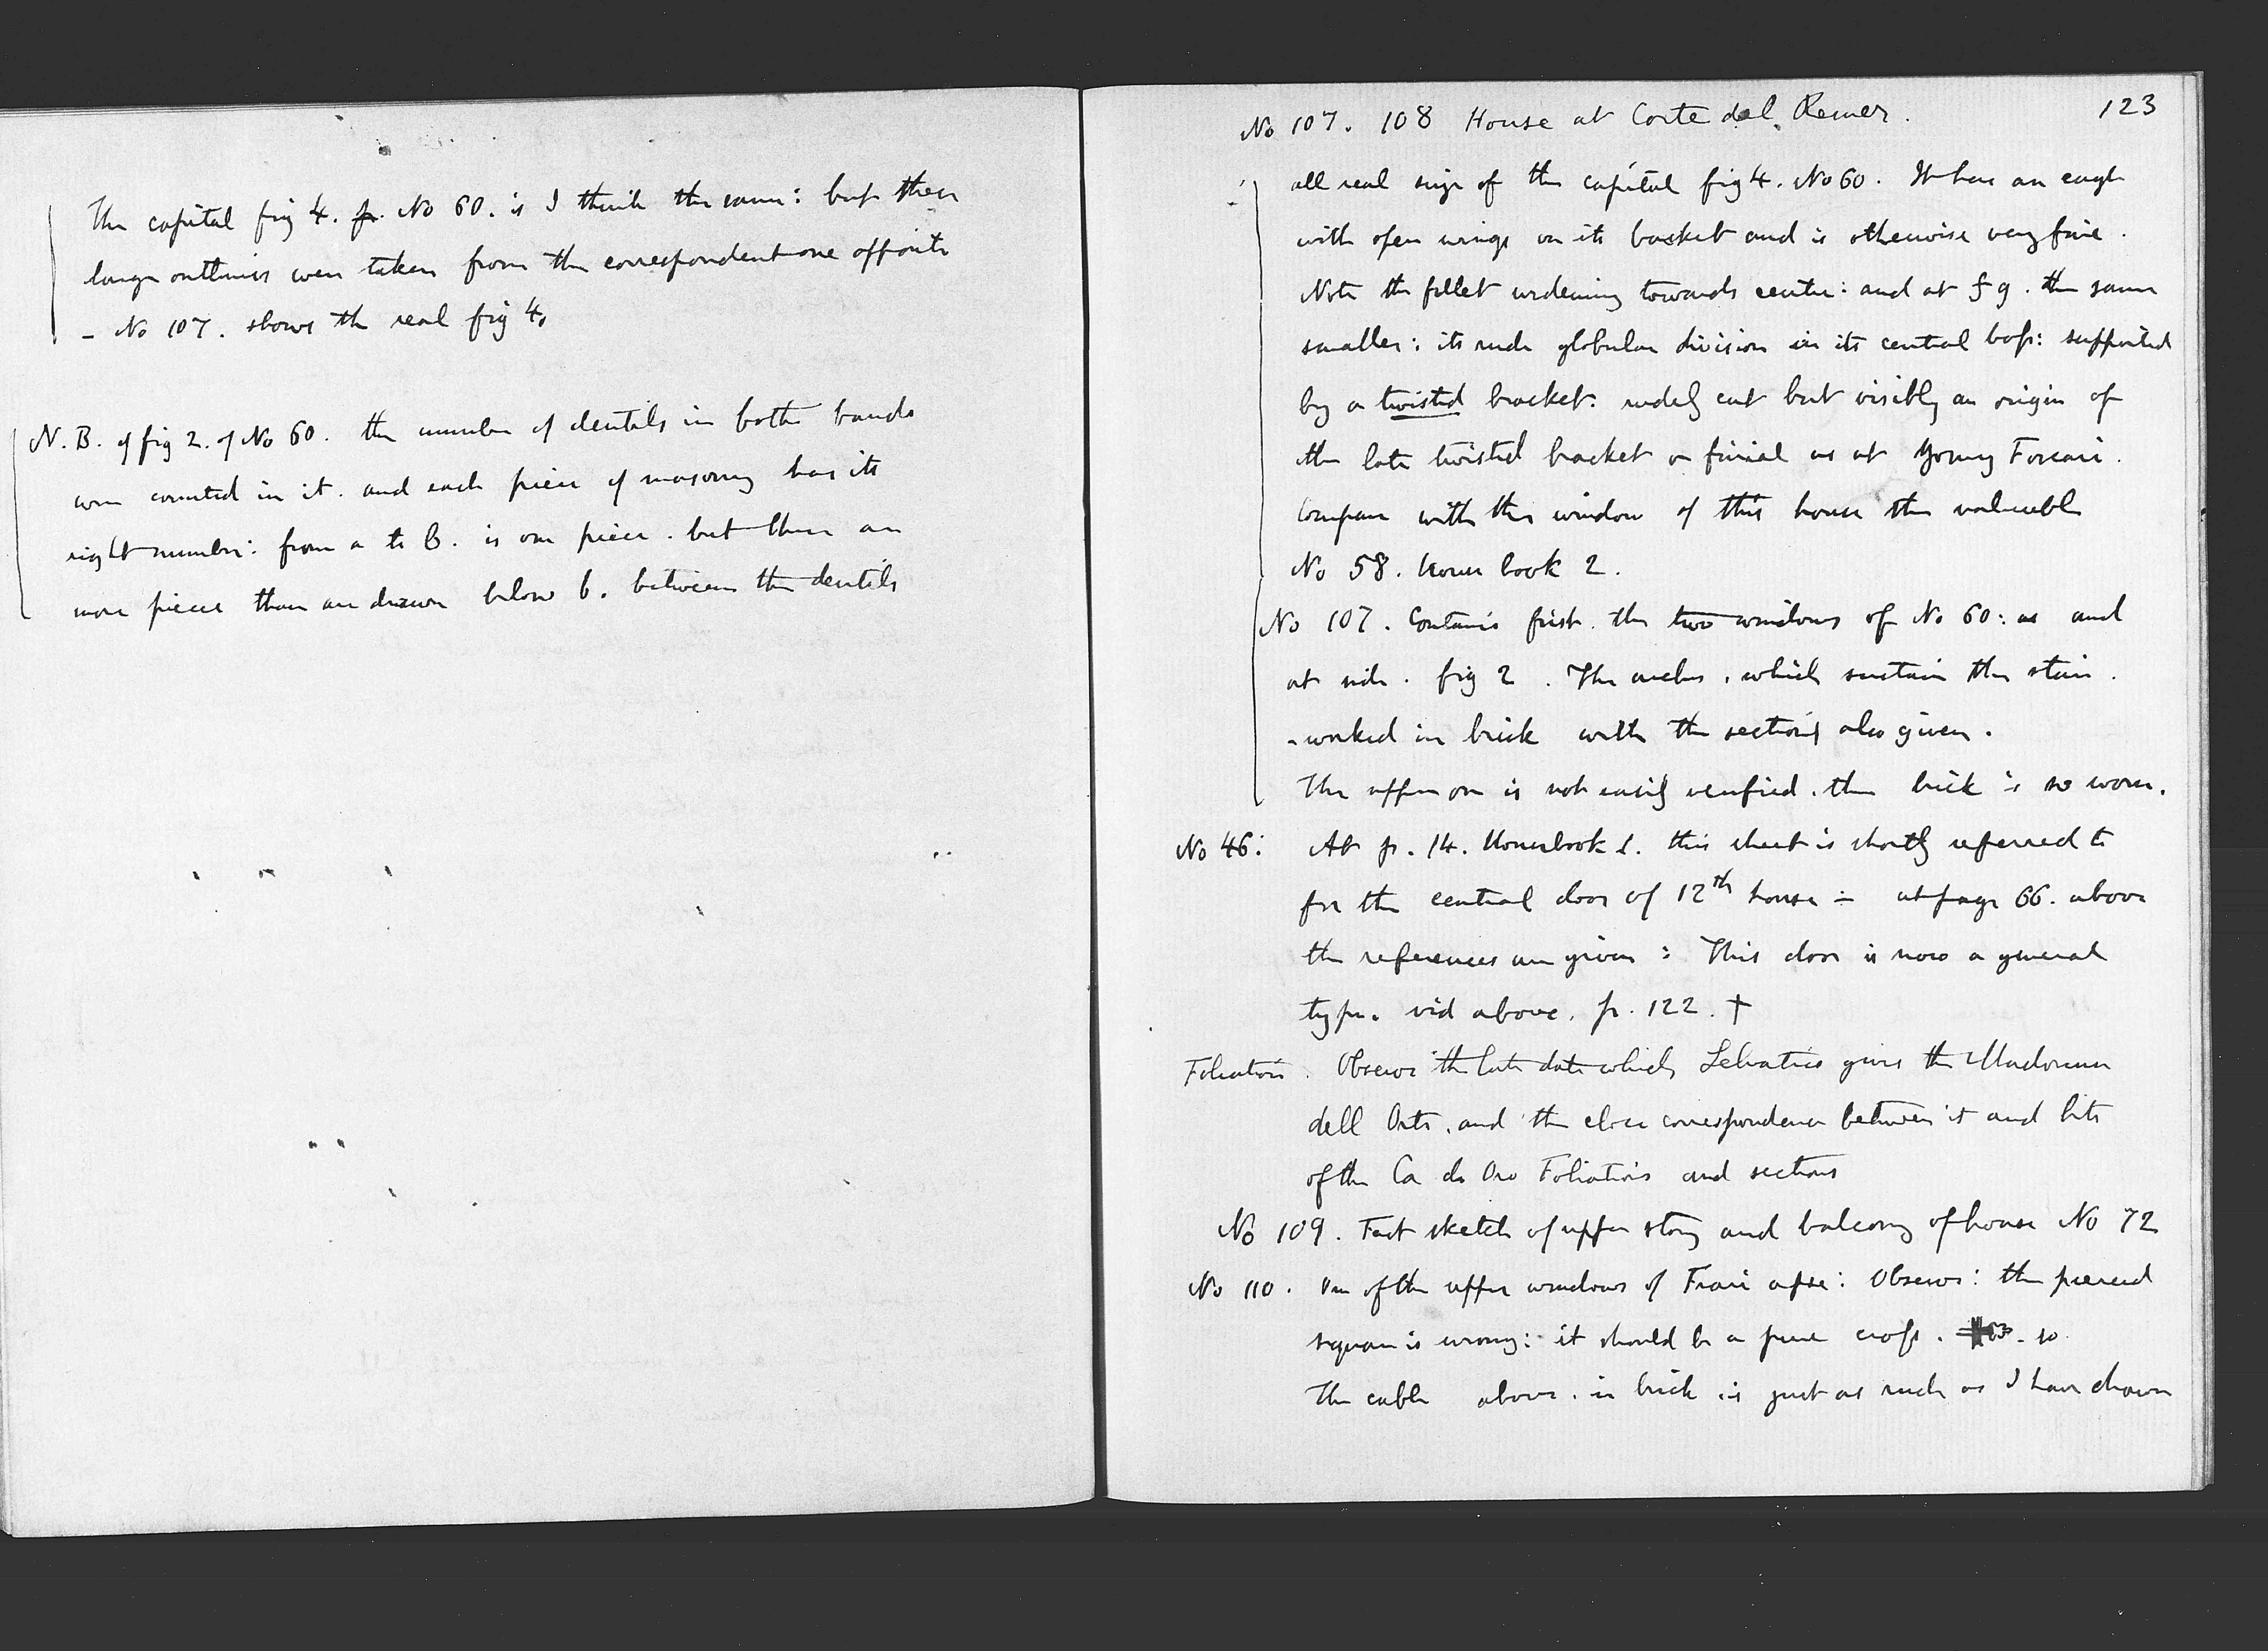 The capital fig 4. p. No 60. is I think the same: but these
large outlines were taken from the correspondent one opposite
- No 107. shows the real fig 4.
N.B. of fig 2. of No 60. the number of dentils in both bands
were counted in it. and each piece of masonry has its
right number: from a to b. is one piece. but there are
more pieces than are drawn below b. between the dentils
123
No 107. 108 House at Corte del Remer.
all real size of the capital fig 4. No 60. It has an eagle
with open wings on its basket and is otherwise very fine.
Note the fillet widening towards centre: and at f g. the same
smaller: its rude globular division in its central boss: supported
by a twisted bracket: rudely cut but visibly an origin of
the late twisted bracket or finial as at young Foscari.
Compare with the window of this house the valuable
No 58. House book 2.
No 107. Contains first. the two windows of No 60: as and
at side. fig 2. The arches, which sustain the stair.
- worked in brick with the sections also given.
The upper one is not easily verified. the brick is so worn.
No 46: At p. 14. House book 1. this sheet is shortly referred to
for the central door of 12th house = at page 66. above
the references are given: This door is now a general
type. vid above. p. 122. †
Foliation. Observe the late date which Selvatico gives the Madonna
dell Orto, and the close correspondence between it and bits
of the Ca do Oro Foliations and sections
No 109. Fast sketch of upper story and balcony of house No 72
No 110. One of the upper windows of Frari apse: Observe: the pierced
square is wrong: it should be a pure cross. so
The cable above. in brick is just as rude as I have drawn